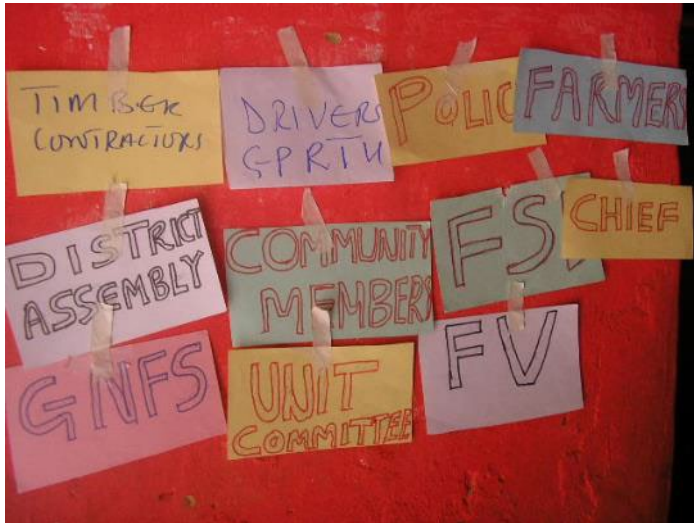 TIMBER
CONTRACTORS
DRIVERS
GPRTU
POLIC
FARMERS
DISTRICT
ASSEMBLY
COMMUNITY
MEMBERS
CHIEF
GNFS
UNIT
COMMITTEE
FV